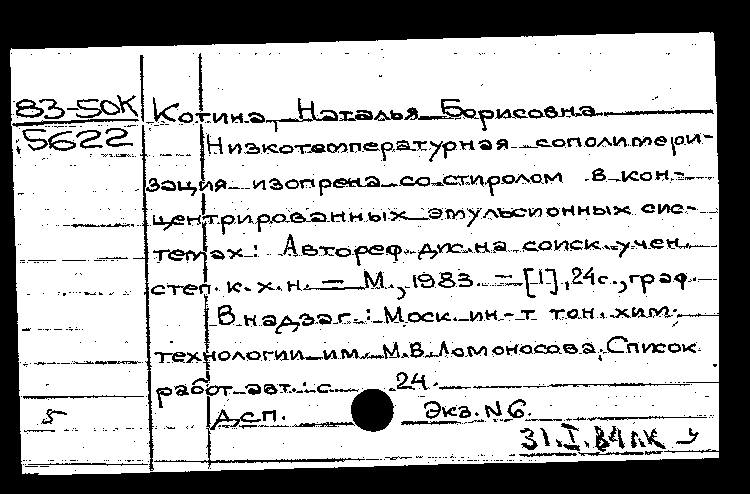 83-50К Котина, Наталья Борисовна
5622 Низкотемпературная сополимери-
зация изопрена со стиролом в кон-
центрированных эмульсионных сис-
темах: Автореф. дис. на соиск. учен.
степ. к. х. н. — М., 1983. — [1], 24с., граф.
В надзаг.: Моск. ин-т тон. хим.
технологии им. М.В. Ломоносова. Список
работ авт.: с. 24.
5 Дсп. Экз. N6.
31.I.84 ПК